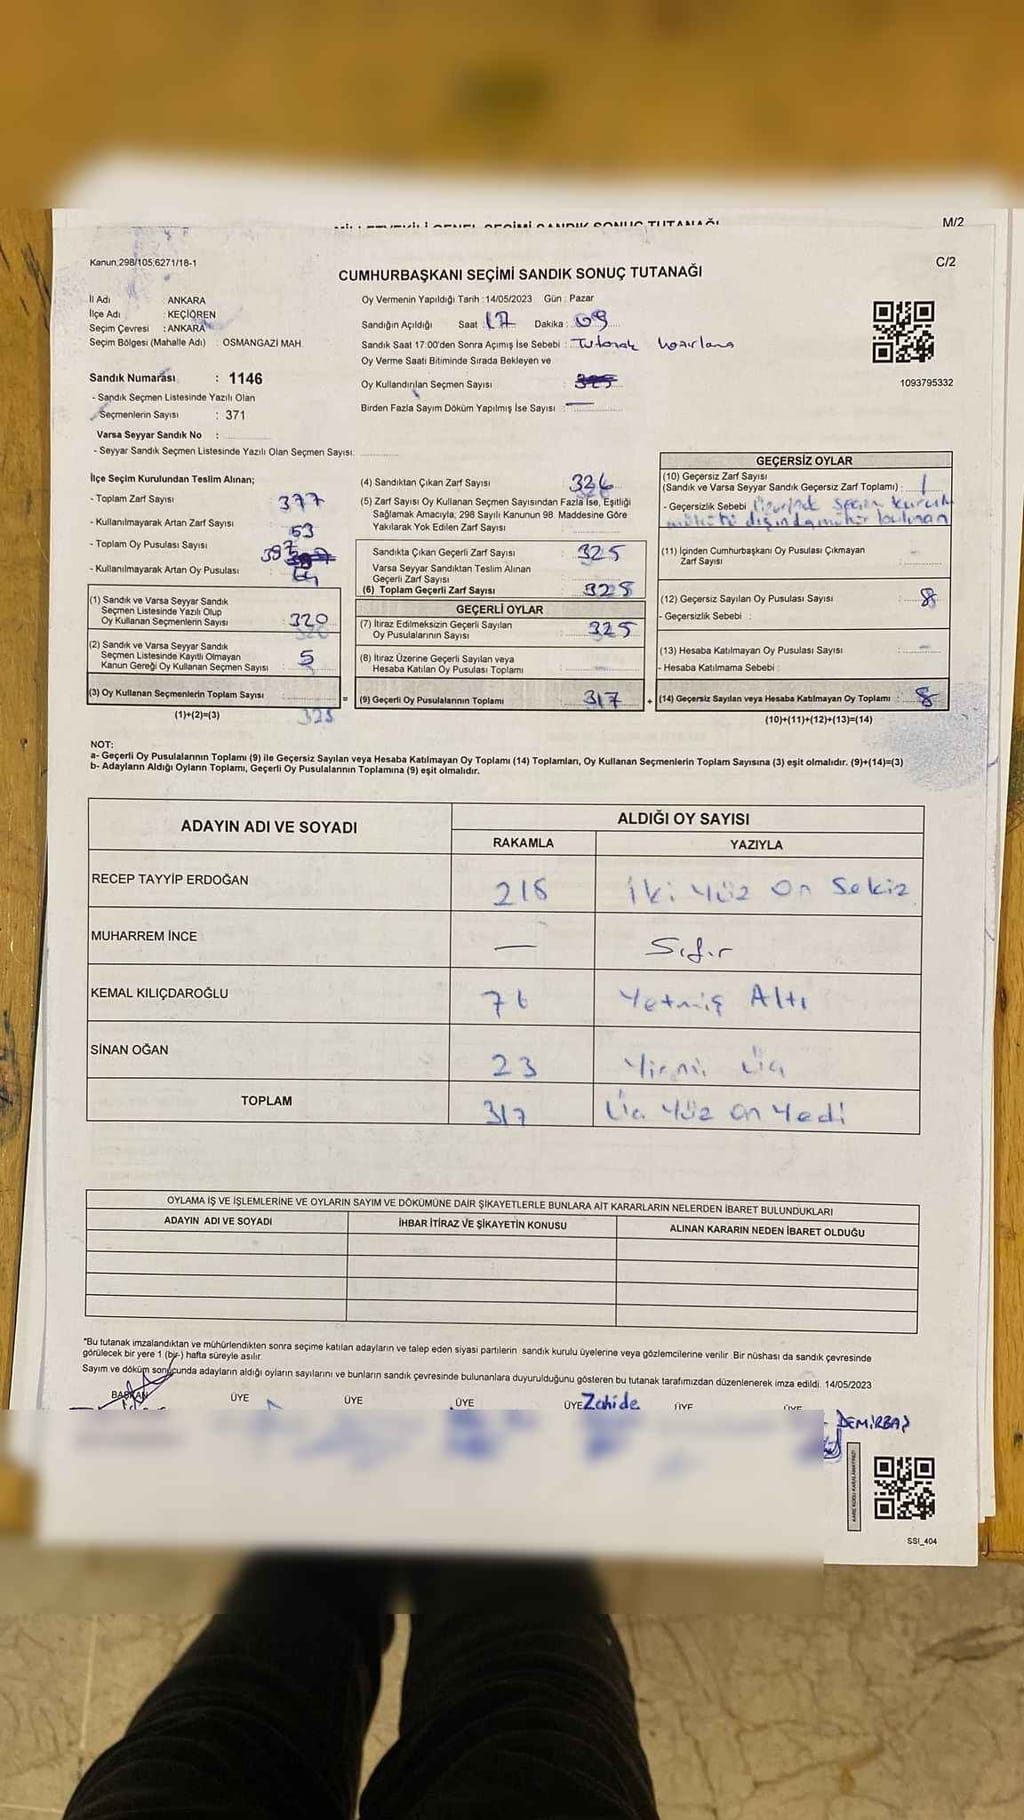 M/2
Kanun 298/105,6271/18-1
CUMHURBAŞKANI SEÇİMİ SANDIK SONUÇ TUTANAĞI
C/2
İl Adı : ANKARA
İlçe Adı : KEÇİÖREN
Seçim Çevresi : ANKARA
Seçim Bölgesi (Mahalle Adı) : OSMANGAZİ MAH.
Sandık Numarası : 1146
- Sandık Seçmen Listesinde Yazılı Olan
Seçmenlerin Sayısı : 371
Varsa Seyyar Sandık No :
- Seyyar Sandık Seçmen Listesinde Yazılı Olan Seçmen Sayısı:
Oy Vermenin Yapıldığı Tarih : 14/05/2023 Gün : Pazar
Sandığın Açıldığı Saat : 17 Dakika : 09
Sandık Saat 17:00'den Sonra Açımış İse Sebebi : Tutanak
Oy Verme Saati Bitiminde Sırada Bekleyen ve
Oy Kullandırılan Seçmen Sayısı :
Birden Fazla Sayım Döküm Yapılmış İse Sayısı : —
1093795332
İlçe Seçim Kurulundan Teslim Alınan;
- Toplam Zarf Sayısı 377
- Kullanılmayarak Artan Zarf Sayısı 53
- Toplam Oy Pusulası Sayısı
- Kullanılmayarak Artan Oy Pusulası
(1) Sandık ve Varsa Seyyar Sandık
Seçmen Listesinde Yazılı Olup
Oy Kullanan Seçmenlerin Sayısı : 320
(2) Sandık ve Varsa Seyyar Sandık
Seçmen Listesinde Kayıtlı Olmayan
Kanun Gereği Oy Kullanan Seçmen Sayısı : 5
(3) Oy Kullanan Seçmenlerin Toplam Sayısı :
(1)+(2)=(3) 325
(4) Sandıktan Çıkan Zarf Sayısı : 326
(5) Zarf Sayısı Oy Kullanan Seçmen Sayısından Fazla İse, Eşitliği
Sağlamak Amacıyla; 298 Sayılı Kanunun 98. Maddesine Göre
Yakılarak Yok Edilen Zarf Sayısı :
Sandıkta Çıkan Geçerli Zarf Sayısı : 325
Varsa Seyyar Sandıktan Teslim Alınan
Geçerli Zarf Sayısı :
(6) Toplam Geçerli Zarf Sayısı : 325
GEÇERLİ OYLAR
(7) İtiraz Edilmeksizin Geçerli Sayılan
Oy Pusulalarının Sayısı : 325
(8) İtiraz Üzerine Geçerli Sayılan veya
Hesaba Katılan Oy Pusulası Toplamı : —
= (9) Geçerli Oy Pusulalarının Toplamı : 317
GEÇERSİZ OYLAR
(10) Geçersiz Zarf Sayısı
(Sandık ve Varsa Seyyar Sandık Geçersiz Zarf Toplamı) : 1
- Geçersizlik Sebebi : Üzerinde seçim kurulu
mührü dışında mühür bulunan
(11) İçinden Cumhurbaşkanı Oy Pusulası Çıkmayan
Zarf Sayısı : -
(12) Geçersiz Sayılan Oy Pusulası Sayısı : 8
- Geçersizlik Sebebi :
(13) Hesaba Katılmayan Oy Pusulası Sayısı : -
- Hesaba Katılmama Sebebi :
+ (14) Geçersiz Sayılan veya Hesaba Katılmayan Oy Toplamı : 8
(10)+(11)+(12)+(13)=(14)
NOT:
a- Geçerli Oy Pusulalarının Toplamı (9) ile Geçersiz Sayılan veya Hesaba Katılmayan Oy Toplamı (14) Toplamları, Oy Kullanan Seçmenlerin Toplam Sayısına (3) eşit olmalıdır. (9)+(14)=(3)
b- Adayların Aldığı Oyların Toplamı, Geçerli Oy Pusulalarının Toplamına (9) eşit olmalıdır.
ADAYIN ADI VE SOYADI
ALDIĞI OY SAYISI
RAKAMLA YAZIYLA
RECEP TAYYİP ERDOĞAN 218 İki Yüz On Sekiz
MUHARREM İNCE — Sıfır
KEMAL KILIÇDAROĞLU 76 Yetmiş Altı
SİNAN OĞAN 23 Yirmi Üç
TOPLAM 317 Üç Yüz On Yedi
OYLAMA İŞ VE İŞLEMLERİNE VE OYLARIN SAYIM VE DÖKÜMÜNE DAİR ŞİKAYETLERLE BUNLARA AİT KARARLARIN NELERDEN İBARET BULUNDUKLARI
ADAYIN ADI VE SOYADI İHBAR İTİRAZ VE ŞİKAYETİN KONUSU ALINAN KARARIN NEDEN İBARET OLDUĞU
*Bu tutanak imzalandıktan ve mühürlendikten sonra seçime katılan adayların ve talep eden siyasi partilerin sandık kurulu üyelerine veya gözlemcilerine verilir. Bir nüshası da sandık çevresinde
görülecek bir yere 1 (bir) hafta süreyle asılır.
Sayım ve döküm sonucunda adayların aldığı oyların sayılarını ve bunların sandık çevresinde bulunanlara duyurulduğunu gösteren bu tutanak tarafımızdan düzenlenerek imza edildi. 14/05/2023
BAŞKAN ÜYE ÜYE ÜYE ÜYE Zahide ÜYE ÜYE
DEMİRBAŞ
SSI_404